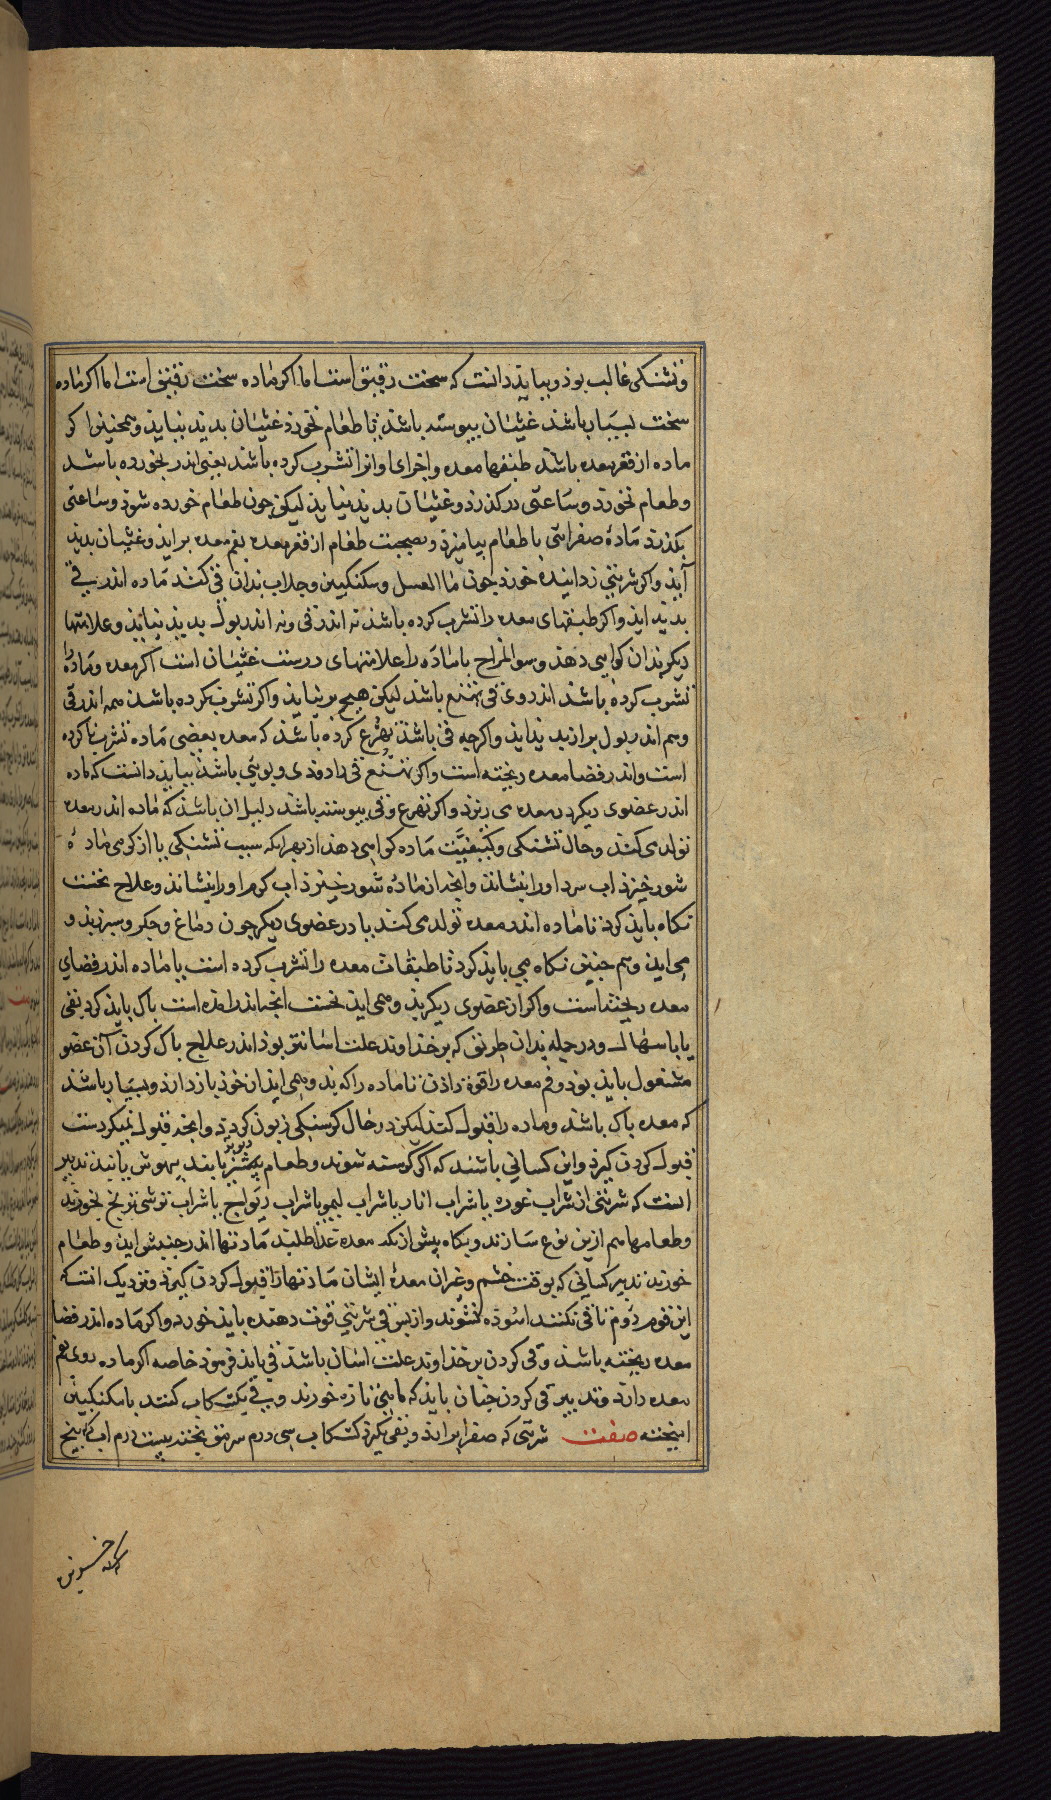 و تشنکی غالب بوذ و ببایذ دانست که سخت رقیق است اما اکر ماده سخت رقیق است اما اکر ماده
سخت بسیار باشذ غثیان پیوسته باشذ تا طعام نخورذ غثیان بدید نیایذ و همچنین اکر
ماده از قعر معده باشذ طبقها معده و اجزای او انرا تشرب کرده باشد یعنی اندر بخورده باشد
و طعام نخورد و ساعتی در کذرذ و غثیان بدید نیایذ لیکن چون طعام خورده شوذ و ساعتی
بکذرذ ماده صفرائی با طعام بیامیزذ و بصحبت طعام از قعر معده بفم معده برایذ و غثیان بدید
آیذ و اکر شربتی زداینده خورذ چون ما العسل و سکنکبین و جلاب بدان قی کند ماده اندر قی
بدید ایذ و اکر طبقهای معده را تشرب کرده باشذ نه اندر قی و نه اندر بول بدید نیایذ و علامتها
دیکر بدان کواهی دهذ و سوالمزاج با ماده را علامتهای درست غثیان است اکر معده و ماده را
تشرب کرده باشذ اندر وی قی تهتع باشذ لیکن هیچ بر نیایذ و اکر تشرب نکرده باشذ همه اندر قی
و هم اندر بول برازیدید ایذ و اکرچه قی باشذ تهرع کرده باشذ که معده بعضی ماده تشرب ناکرده
است و اندر فضا معده ریخته است و اکر تهتع قی را دوذی و بویی باشذ ببایذ دانست که ماده
اندر عضوی دیکر در معده می ریزذ و اکر تهرع و قی پیوسته باشد دلیل ان باشذ که ماده اندر معده
تولد می کند و حال تشنکی و کیفیّت ماده کواهی دهذ از بهر انکه سبب تشنکی یا از کرمی ماده
شور خیزذ اب سرد او را بنشاند و انچه از ماده شور خیزذ اب کرم او را بنشاند و علاج نخست
نکاه بایذ کرد تا ماده اندر معده تولد می کند یا در عضوی دیکر چون دماغ و جکر و سپرز بدو
می ایذ و هم چنین نکاه می بایذ کرد تا طبقات معده را تشرب کرده است یا ماده اندر فضای
معده ریخته است و اکر از عضوی دیکر بدو همی ایذ نخست انچه اندر امده است پاک بایذ کرد بقی
یا باسهال و در جمله بدان طریق که بر خذاوند علت اسانتر بوذ اندر علاج پاک کردن آن عضو
مشغول بایذ بود و فم معده را قوة داذن تا ماده را که بدو همی ایذ از خوذ باز دارذ و بسیار باشذ
که معده پاک باشذ و ماده را قبول کند لیکن در حال کرسنکی زبون کردد و انچه قبول نمیکردست
قبول کردن کیرذ و این کسانی باشند که اکر کرسنه شوند و طعام دیرتر یابند بیهوش یابند تدبیر
انست که شربتی از شراب غوره یا شراب انار یا شراب لیمو یا شراب ریواج یا شراب ترشی ترنج بخورند
و طعامها هم ازین نوع سازند و بکاه پیش از انکه معده غذا طلبد مادتها اندر جنبش این و طعام
خورند تدبیر کسانی که بوقت خشم و غیر ان معدهٔ ایشان مادتها را قبول کردن کیرذ و نزدیک انست که
این قوم دوم تا قی نکنند اسوده نشوند و از پس قی شربتی قوت دهنده بایذ خورد و اکر ماده اندر فضا
معده ریخته باشذ و قی کردن بر خذاوند علت اسان باشذ قی بایذ فرموذ خاصه اکر ماده روی بفم
معده دارد و تدبیر قی کردن چنان بایذ که ماهی تازه خورند و پی کشکاب کنند با سکنکبین
امیخته صفت شربتی که صفرا براند و بقی بکیرذ کشکاب سی درم سرمق پخته بیست درم اب که بیخ